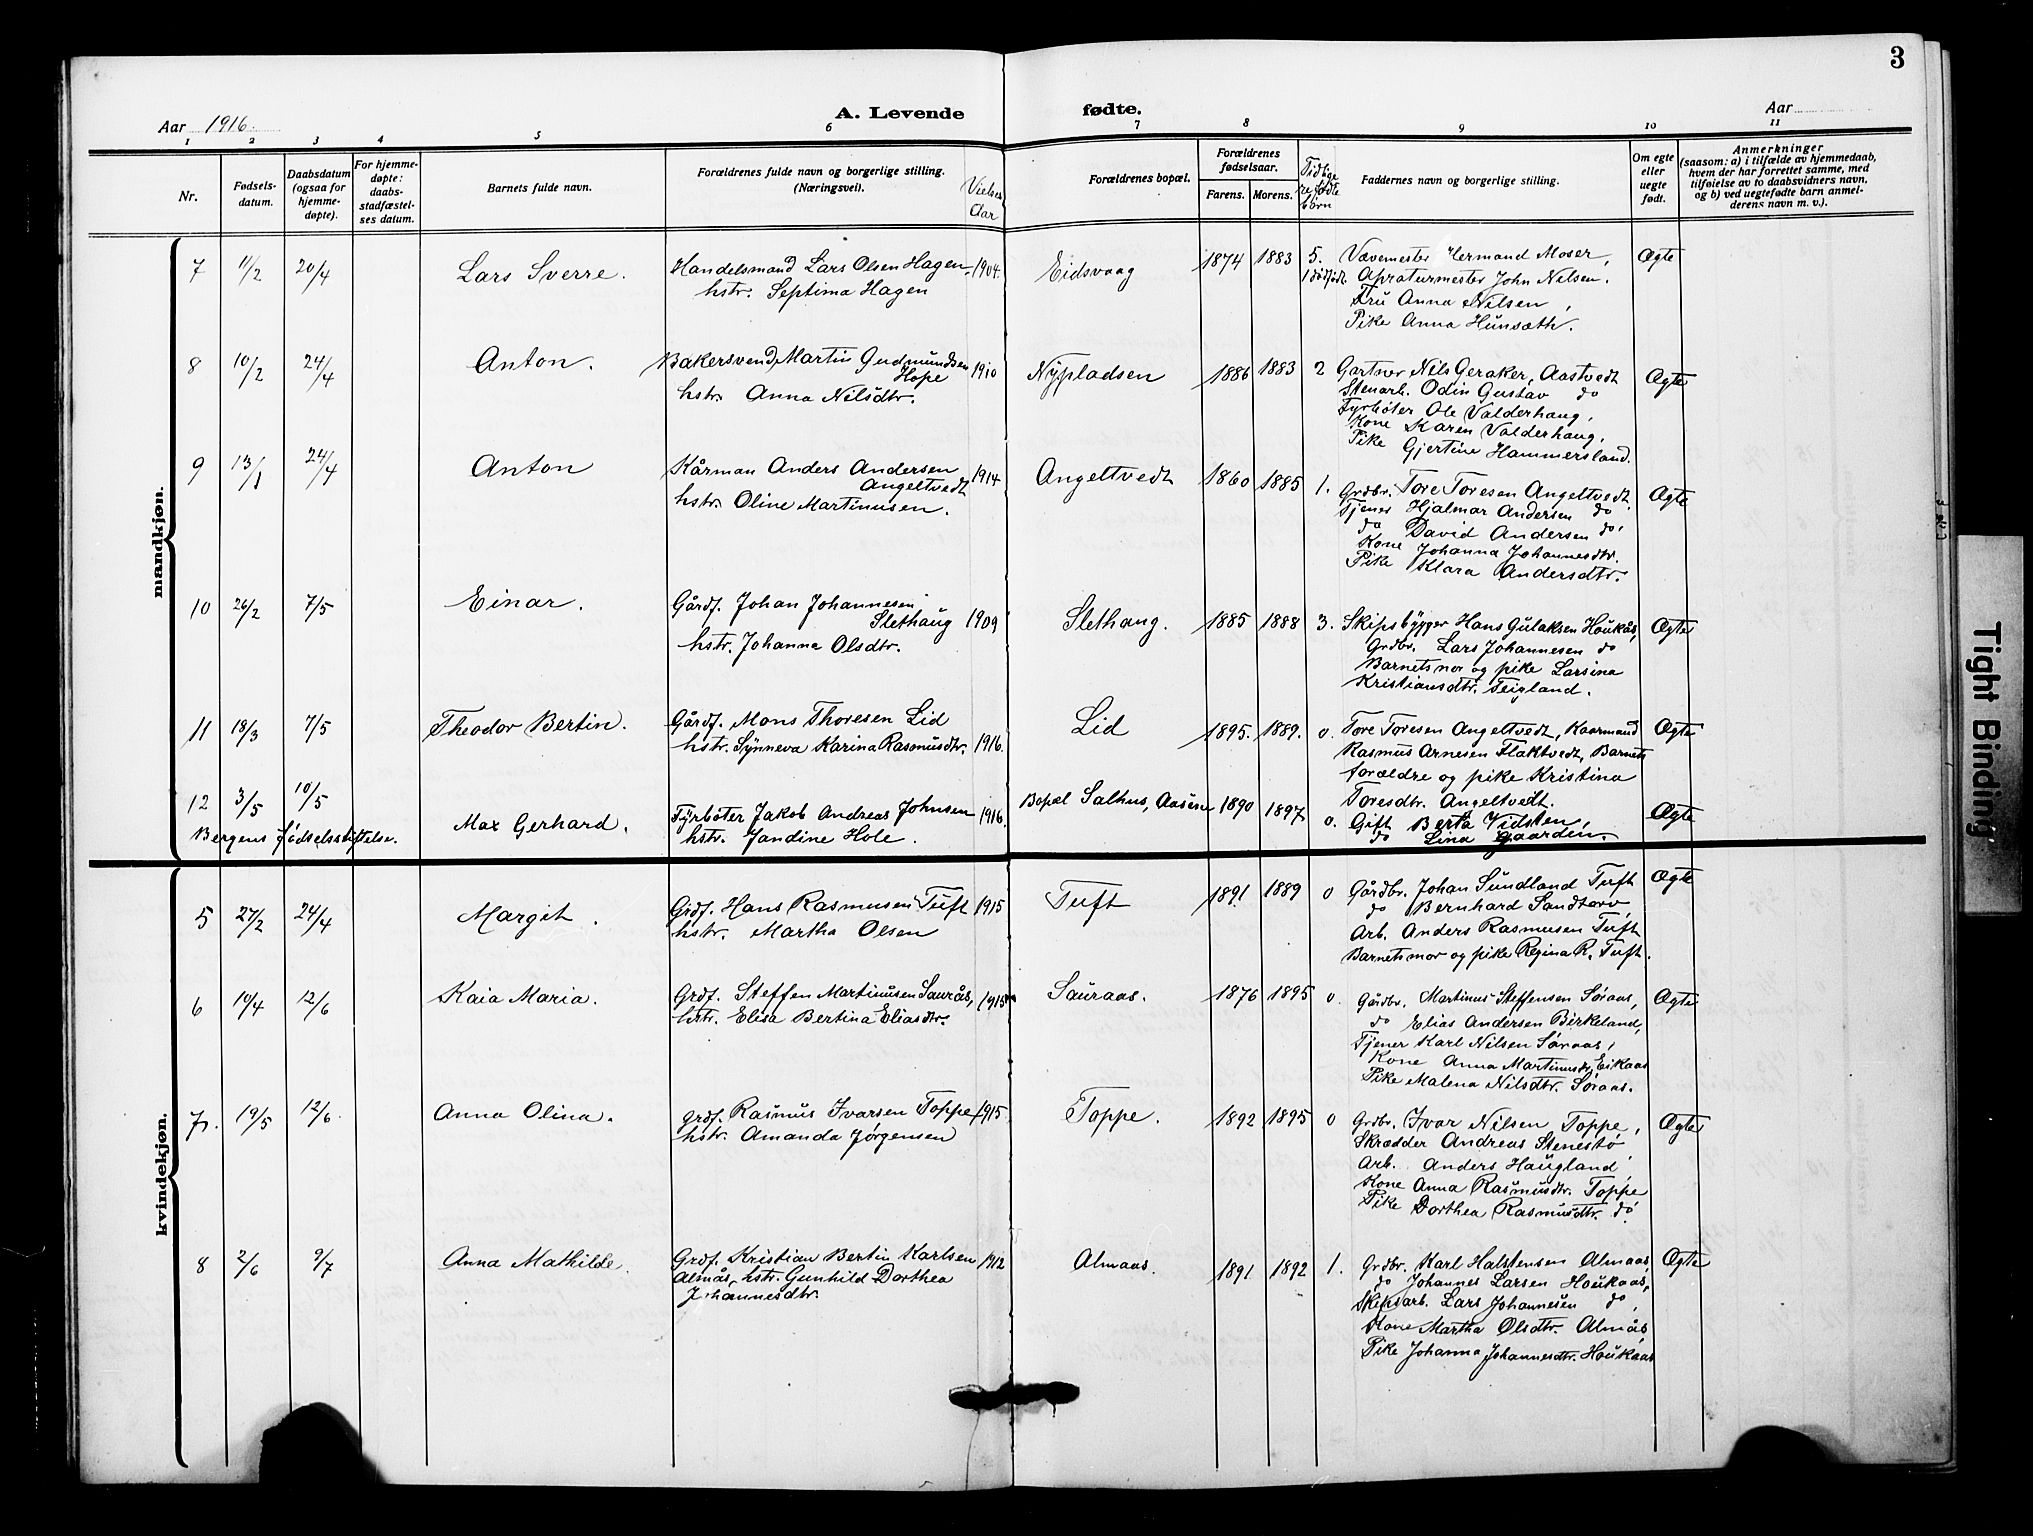 3
Aar 1916.
A. Levende fødte.
Aar
1 2 3 4 5 6 7 8 9 10 11
Nr.
Fødsels-
datum.
Daabsdatum
(ogsaa for
hjemme-
døpte).
For hjemme-
døpte:
daabs-
stadfæstel-
ses datum.
Barnets fulde navn.
Forældrenes fulde navn og borgerlige stilling.
(Næringsvei).
Vielses
Aar
Forældrenes bopæl.
Forældrenes
fødselsaar.
Farens. Morens.
Tidlige
re fødte
børn
Faddernes navn og borgerlige stilling.
Om egte
eller
uegte
født.
Anmerkninger
(saasom: a) i tilfælde av hjemmedaab,
hvem der har forrettet samme, med
tilføielse av to daabsvidners navn.
og b) ved uegtefødte barn anmel-
derens navn m. v.).
mandkjøn.
7 11/2 20/4 Lars Sverre. Handelsmand Lars Olsen Hagen 1904. Eidsvaag 1874 1883 5. Vævemester Hermand Moser, Ægte
hstr. Septima Hagen 1 dødfødt. Apraturmester John Nilsen.
Fru Anna Nilsen,
Pike Anna Hunsæth.
8 10/2 24/4 Anton. Bakersvend, Martin Gudmundsen 1910 Nypladsen 1886 1883 2 Gartner Nils Geraker, Aastvedt Ægte
Hope
hstr. Anna Nilsdtr. Stenarb. Odin Gustav do
Fyrbøter Ole Valderhaug,
Kone Karen Valderhaug.
Pike Gjertine Hammersland.
9 13/1 24/4 Anton Kårman Anders Andersen 1914 Angeltvedt 1860 1885 1. Grdbr. Tore Toresen Angeltvedt Ægte
Angeltvedt
hstr. Oline Martinusen. Tjener Hjalmar Andersen do
do David Andersen do.
Kone Johanna Johannesdtr.
Pike Klara Andersdtr.
10 26/2 7/5 Einar. Gårdf. Johan Johannesen 1909 Slethaug. 1885 1888 3. Skipsbygger Hans Gulaksen Houkås, Ægte
Slethaug
hstr. Johanna Olsdtr. Grdbr. Lars Johannesen do
Barnets mor og pike Larsina
Kristiansdtr. Teigland.
11 18/3 7/5 Theodor Bertin. Gårdf. Mons Thoresen Lid Lid 1895. 1889. 0. Tore Toresen Angeltvedt, Kaarmand Ægte
hstr. Synneva Karina Rasmusdtr. 1916. Rasmus Arnesen Flaktvedt, Barnets
forældre og pike Kristina
Toresdtr. Angeltvedt.
12 3/5 10/5 Max Gerhard. Fyrbøter Jakob Andreas Johnsen 1916. Bopæl Salhus, Aasen 1890 1897 0. Gift Berta Vidsten, Ægte
Bergens fødselsstiftelse. hstr. Jandine Hole. do Lina Gaarden.
kvindekjøn.
5 27/2 24/4 Margit. Grdf. Hans Rasmusen Tuft 1915 Tuft 1891 1889 0 Gårdbr. Johan Sundland Tuft Ægte
hstr. Martha Olsen do Bernhard Sandtorv
Arb. Anders Rasmusen Tuft
Barnets mor og pike Regina R. Tuft.
6 10/4 12/6 Kaia Maria. Grdf. Steffen Martinusen Saurås, 1915 Sauraas. 1876 1895 0. Gårdbr. Martinus Steffensen Søraas, Ægte
hstr. Elisa Bertina Eliasdtr. do Elias Andersen Birkeland,
Tjener Karl Nilsen Søraas,
Kone Anna Martinusdtr. Eikaas
Pike Malena Nilsdtr. Søraas.
7. 19/5 12/6. Anna Olina. grdf. Rasmus Ivarsen Toppe 1915. Toppe. 1892 1895 0 Grdbr. Ivar Nilsen Toppe, Ægte
hstr. Amanda Jørgensen Skrædder Andreas Stenestø
Arb. Anders Haugland,
Kone Anna Rasmusdtr. Toppe
Pike Dorthea Rasmusdtr. do.
8 2/6 9/7 Anna Mathilde. Grdf. Kristian Bertin Karlsen 1912 Almaas. 1891 1892 1. Grdbr. Karl Halstensen Almaas, Ægte
Almås, hstr. Gunhild Dorthea do Johannes Larsen Houkaas,
Johannesdtr. Skipsarb. Lars Johannesen do,
Kone Martha Olsdtr. Almås,
Pike Johanna Johannesdtr. Houkaas
Tight Binding